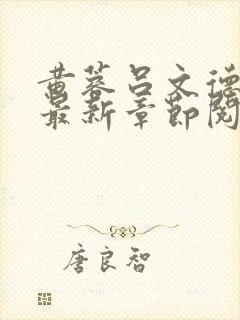 黄蓉吕文德
最新章节阅
唐良智